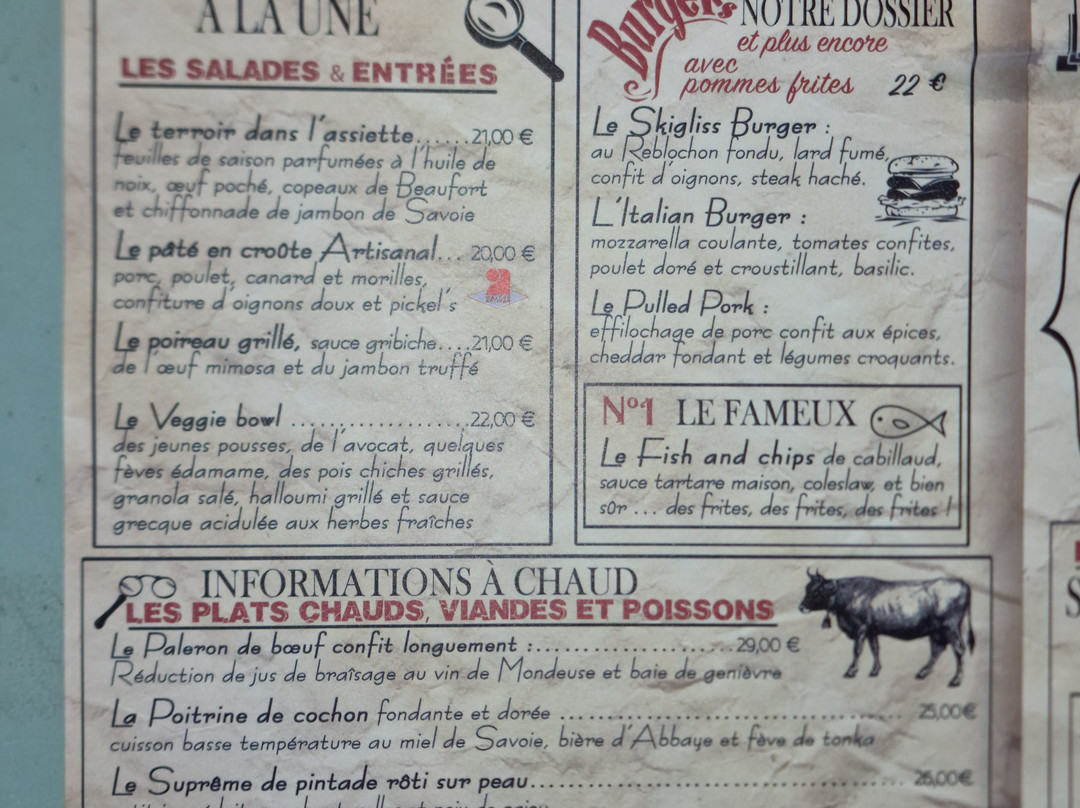 À LA UNE
LES SALADES & ENTRÉES
Le terroir dans l'assiette.......21,00 €
feuilles de saison parfumées à l'huile de
noix, œuf poché, copeaux de Beaufort
et chiffonnade de jambon de Savoie
Le pâté en croOte Artisanal... 20,00 €
porc, poulet, canard et morilles,
confiture d'oignons doux et pickel's
Le poireau grillé, sauce gribiche....21,00 €
de l'œuf mimosa et du jambon truffé
Le Veggie bowl .......................22,00 €
des jeunes pousses, de l'avocat, quelques
fèves édamame, des pois chiches grillés,
granola salé, halloumi grillé et sauce
grecque acidulée aux herbes fraîches
Burgers NOTRE DOSSIER
et plus encore
avec
pommes frites 22 €
Le Skigliss Burger :
au Reblochon fondu, lard fumé,
confit d'oignons, steak haché.
L'Italian Burger :
mozzarella coulante, tomates confites,
poulet doré et croustillant, basilic.
Le Pulled Pork :
effilochage de porc confit aux épices,
cheddar fondant et légumes croquants.
N°1 LE FAMEUX
Le Fish and chips de cabillaud,
sauce tartare maison, coleslaw, et bien
sOr ... des frites, des frites, des frites !
INFORMATIONS À CHAUD
LES PLATS CHAUDS, VIANDES ET POISSONS
Le Paleron de bœuf confit longuement :.......................29,00 €
Réduction de jus de braîsage au vin de Mondeuse et baie de genièvre
La Poitrine de cochon fondante et dorée ........................................ 25,00€
cuisson basse température au miel de Savoie, bière d'Abbaye et fève de tonka
Le Suprême de pintade rôti sur peau............................................ 26,00€